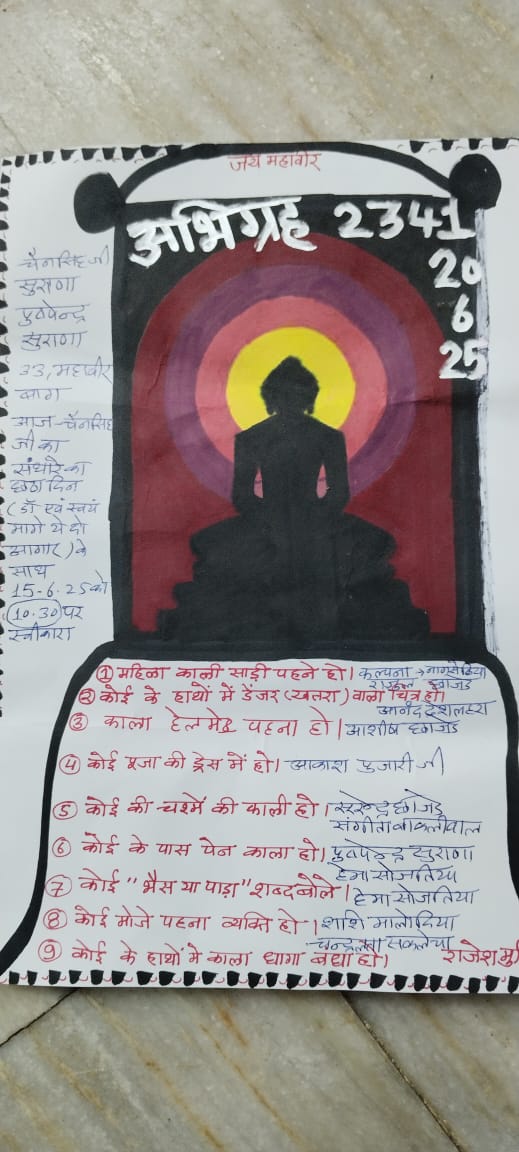 जय महावीर
अभिग्रह 2341
20
6
25
चैनसिंह जी
सुराणा
पुष्पेन्द्र
सुराणा
33, महावीर
बाग
आज चैनसिंह
जी का
संथारे का
छठा दिन
(डॉ एवं स्वयं
मागे थे दो
आगार) के
साथ
15-6-25 को
10.30 पर
स्वीकारा
① महिला काली साड़ी पहने हो। कल्पना → नागसेठिया
② कोई के हाथों में डेंजर (खतरा) वाला चित्र हो।
③ काला हेलमेट पहना हो। आशीष छाजेड़
④ कोई पूजा की ड्रेस में हो। आकाश पुजारी जी
⑤ कोई की चश्में की काली हो। सुरेन्द्र छाजेड़
संगीता बाकलीवाल
⑥ कोई के पास पेन काला हो। पुष्पेन्द्र सुराणा
हेमा सोजतिया
⑦ कोई "भैस या पाड़ा" शब्द बोले। हेमा सोजतिया
⑧ कोई मोजे पहना व्यक्ति हो। शशि मालोदिया
⑨ कोई के हाथों में काला धागा बंधा हो। राजेश मु